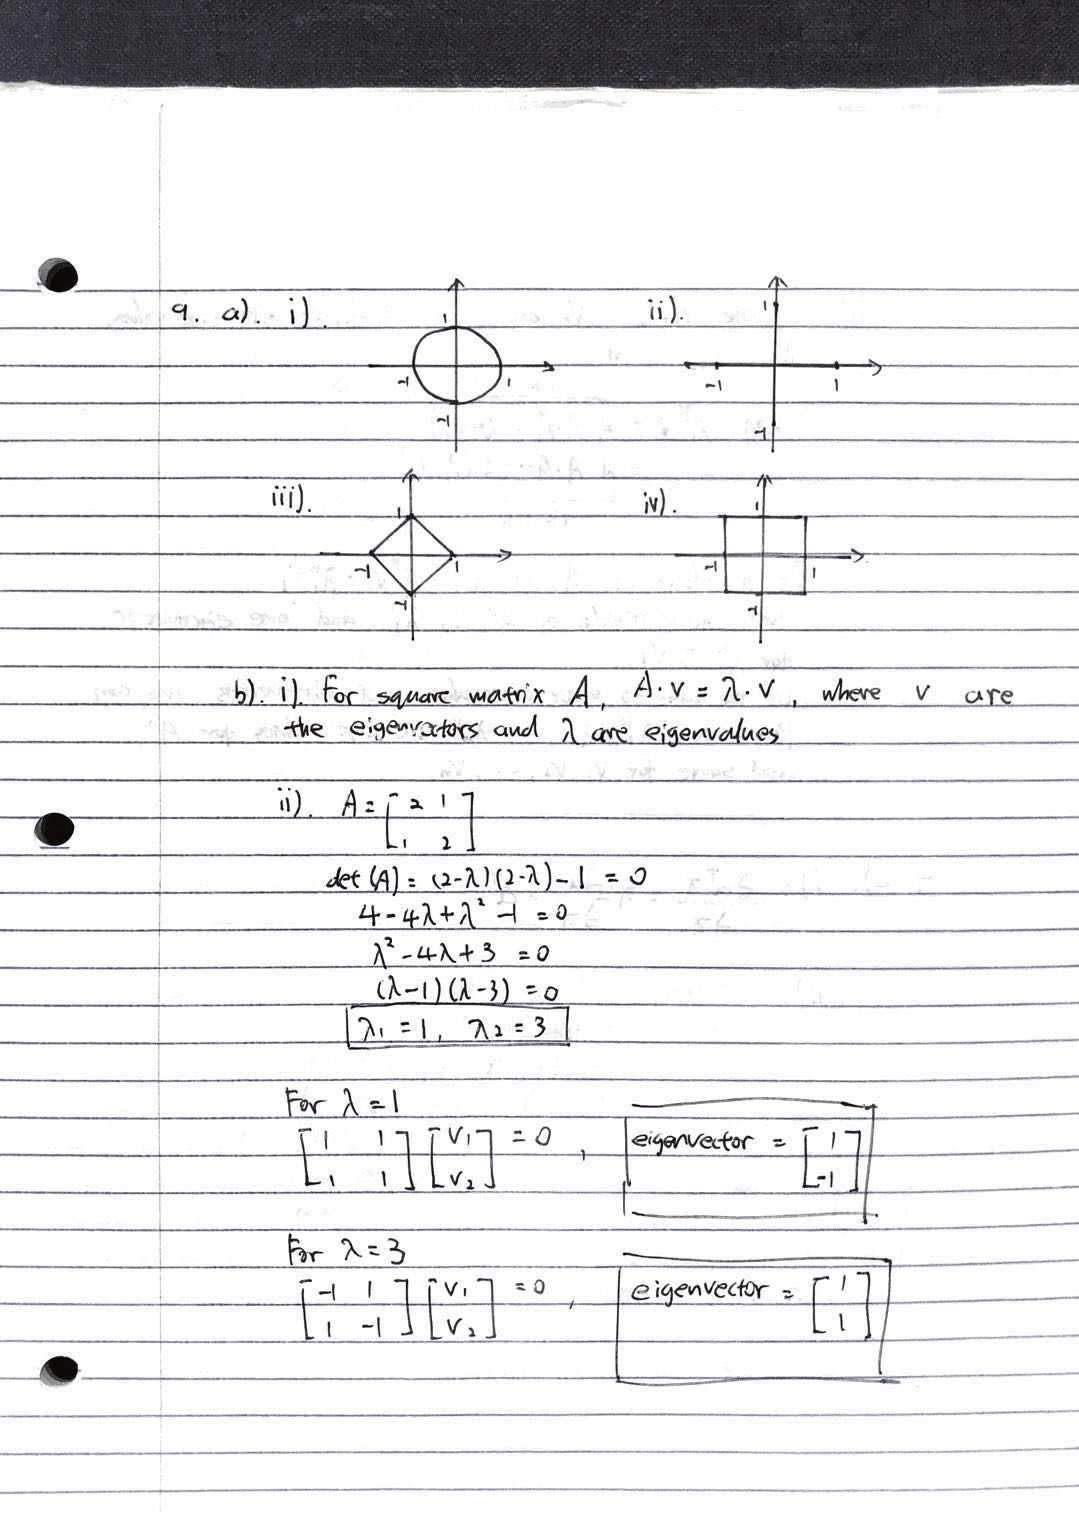 9. a). i). ii).
1 1
-1 1 -1 1
-1 -1
iii). iv).
1 1
-1 1 -1 1
-1 -1
b). i). For square matrix A, A·v = λ·v, where v are
the eigenvectors and λ are eigenvalues
ii). A = [2 1
1 2]
det (A) = (2-λ)(2-λ) - 1 = 0
4 - 4λ + λ² - 1 = 0
λ² - 4λ + 3 = 0
(λ-1)(λ-3) = 0
λ₁ = 1, λ₂ = 3
For λ = 1
[1 1 [v₁ = 0, eigenvector = [1
1 1] v₂] -1]
For λ = 3
[-1 1 [v₁ = 0, eigenvector = [1
1 -1] v₂] 1]